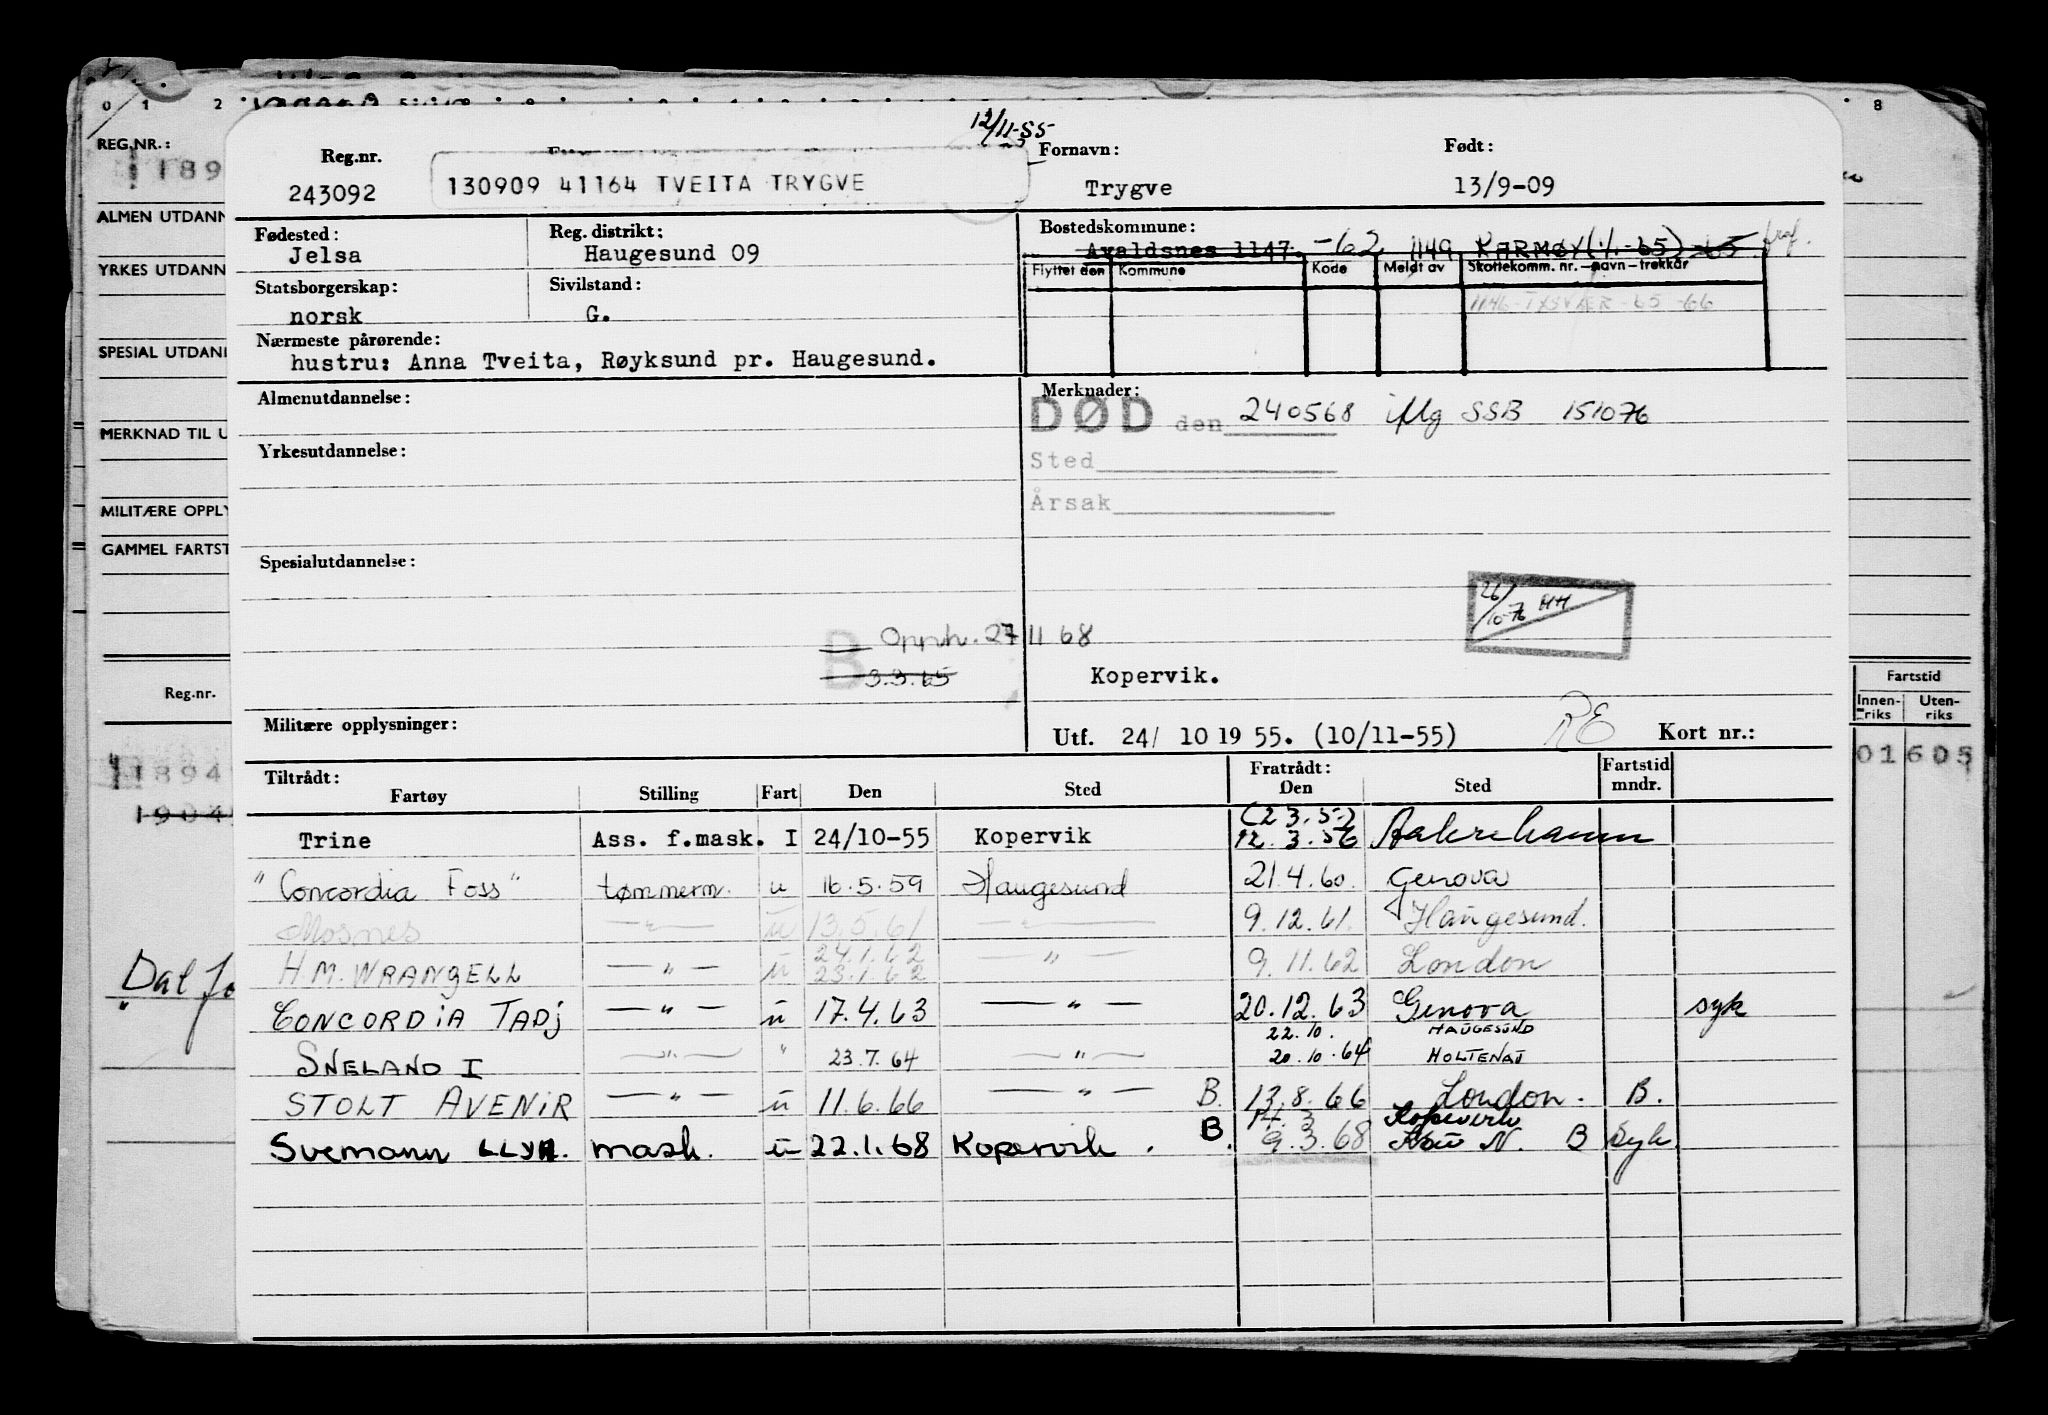 0 1 2 8
12/11-55
REG.NR.:
Reg.nr. Fornavn: Født:
243092 130909 41164 TVEITA TRYGVE Trygve 13/9-09
ALMEN UTDANN
Fødested: Reg. distrikt: Bostedskommune:
Jelsa Haugesund 09 Avaldsnes 1147. -62 1149 KARMØY (1/1-65)
YRKES UTDANN
Flyttet den Kommune Kode Meldt av Skattekomm. nr.-navn-trekkår
Statsborgerskap: Sivilstand:
norsk G. 1146-TYSVÆR-65-66
SPESIAL UTDANI
Nærmeste pårørende:
hustru: Anna Tveita, Røyksund pr. Haugesund.
Almenutdannelse: Merknader:
DØD den 240568 iflg SSB 151076
MERKNAD TIL U
Yrkesutdannelse: Sted
MILITÆRE OPPLY Årsak
GAMMEL FARTST
Spesialutdannelse:
26/10-76 HH
B Opph. 27 11 68
3.3.65 Kopervik.
Reg.nr. Fartstid
Innenriks Utenriks
Militære opplysninger: Utf. 24/ 10 19 55. (10/11-55) RE Kort nr.:
01605
Tiltrådt: Fratrådt: Fartstid
Fartøy Stilling Fart Den Sted Den Sted mndr.
Trine Ass. f.mask. I 24/10-55 Kopervik 12.3.56 Aakrehamn
"Concordia Foss" tømmerm. u 16.5.59 Haugesund 21.4.60. Genova
Mosnes —"— u 13.5.61 —"— 9.12.61. Haugesund.
24.1.62
H.M. WRANGELL —"— u 23.1.62 —"— 9.11.62 London
Dat fo
CONCORDIA TADJ —"— u 17.4.63 —"— 20.12.63 Genova syk
22.10. HAUGESUND
SNELAND I —"— " 23.7.64 —"— 20.10.64 HOLTENAU
STOLT AVENIR —"— u 11.6.66 —"— B. 13.8.66 London. B.
14.3 Kopervik
Svemann LLYR. mask. u 22.1.68 Kopervik. B. 9.3.68 B Syk